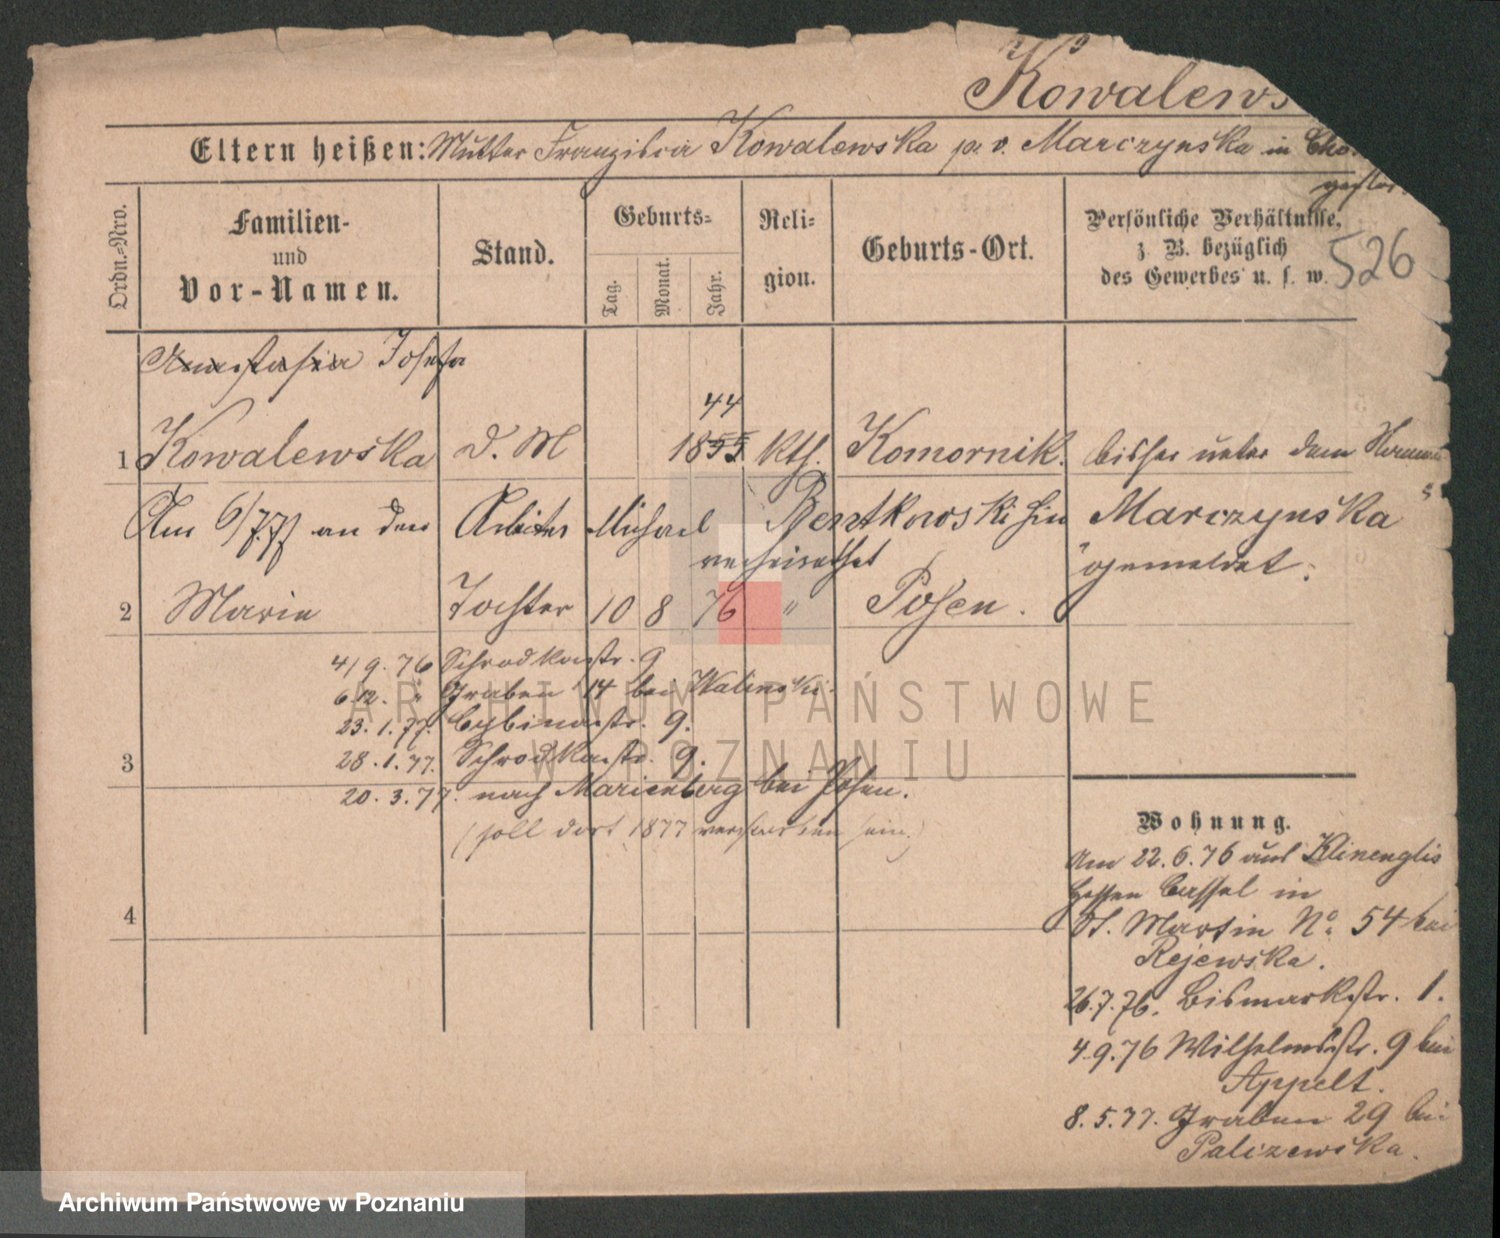 Kowalews
Eltern heißen: Mutter Franziska Kowalewska p. v. Marczynska in
526
Ordn.-Nro.
Familien- und Vor-Namen.
Stand.
Geburts-
Tag.
Monat.
Jahr.
Religion.
Geburts-Ort.
Persönliche Verhältnisse,
z. B. bezüglich
des Gewerbes u. s. w.
Anastasia Josefa
44
1 Kowalewska d. M 1855 kth. Komornik. bisher unter dem Namen
Am 6/7.77 an den Arbeiter Michael Bentkowski hier Marczynska
verheirathet gemeldet.
2 Marie Tochter 10 8 76 " Posen.
4/9.76 Schrodkastr. 9
6.12. " Graben 14 bei Walinski
23.1.77. Cybinastr. 9.
28.1.77. Schrodkastr. 9.
3
20.3.77. nach Marienberg bei Posen.
(soll dort 1877 verstorben sein.)
4
Wohnung.
Am 22.6.76 aus
Hessen Cassel in
St. Martin No. 54 bei
Rejewska.
26.7.76. Bismarkstr. 1.
4.9.76 Wilhelmsstr. 9 bei
Appelt.
8.5.77. Graben 29 bei
Palizewska.
ARCHIWUM PAŃSTWOWE
W POZNANIU
Archiwum Państwowe w Poznaniu